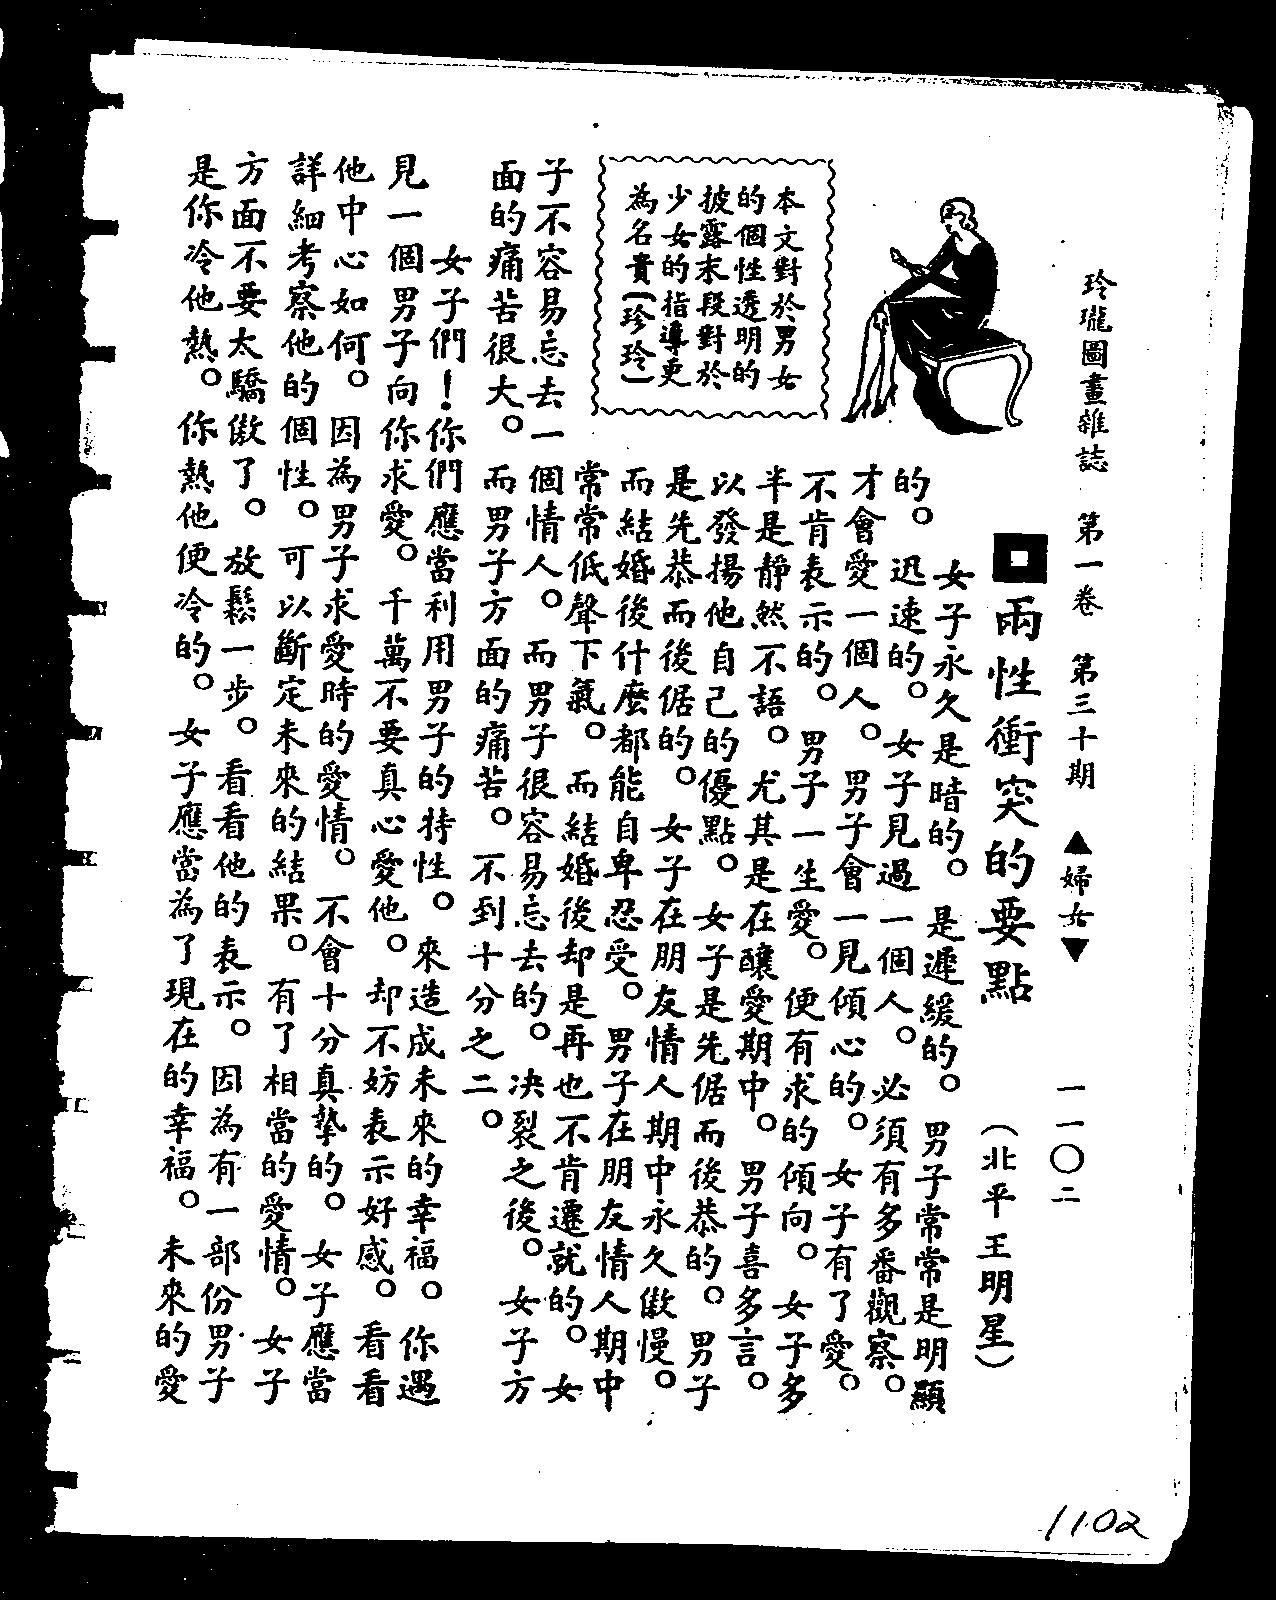 玲瓏圖畫雜誌　第一卷　第三十期　▲婦女▼　一一〇二
兩性衝突的要點　（北平王明星）
本文對於男女
的個性透明的
披露末段對於
少女的指導更
為名貴（珍玲）
女子永久是暗的。是遲緩的。男子常常是明顯
的。迅速的。女子見過一個人。必須有多番觀察。
才會愛一個人。男子會一見傾心的。女子有了愛。
不肯表示的。男子一生愛。便有求的傾向。女子多
半是靜然不語。尤其是在釀愛期中。男子喜多言。
以發揚他自己的優點。女子是先倨而後恭的。男子
是先恭而後倨的。女子在朋友情人期中永久傲慢。
而結婚後什麼都能自卑忍受。男子在朋友情人期中
常常低聲下氣。而結婚後却是再也不肯遷就的。女
子不容易忘去一個情人。而男子很容易忘去的。决裂之後。女子方
面的痛苦很大。而男子方面的痛苦。不到十分之二。
女子們！你們應當利用男子的特性。來造成未來的幸福。你遇
見一個男子向你求愛。千萬不要真心愛他。却不妨表示好感。看看
他中心如何。因為男子求愛時的愛情。不會十分真摯的。女子應當
詳細考察他的個性。可以斷定未來的結果。有了相當的愛情。女子
方面不要太驕傲了。放鬆一步。看看他的表示。因為有一部份男子
是你冷他熱。你熱他便冷的。女子應當為了現在的幸福。未來的愛
1102